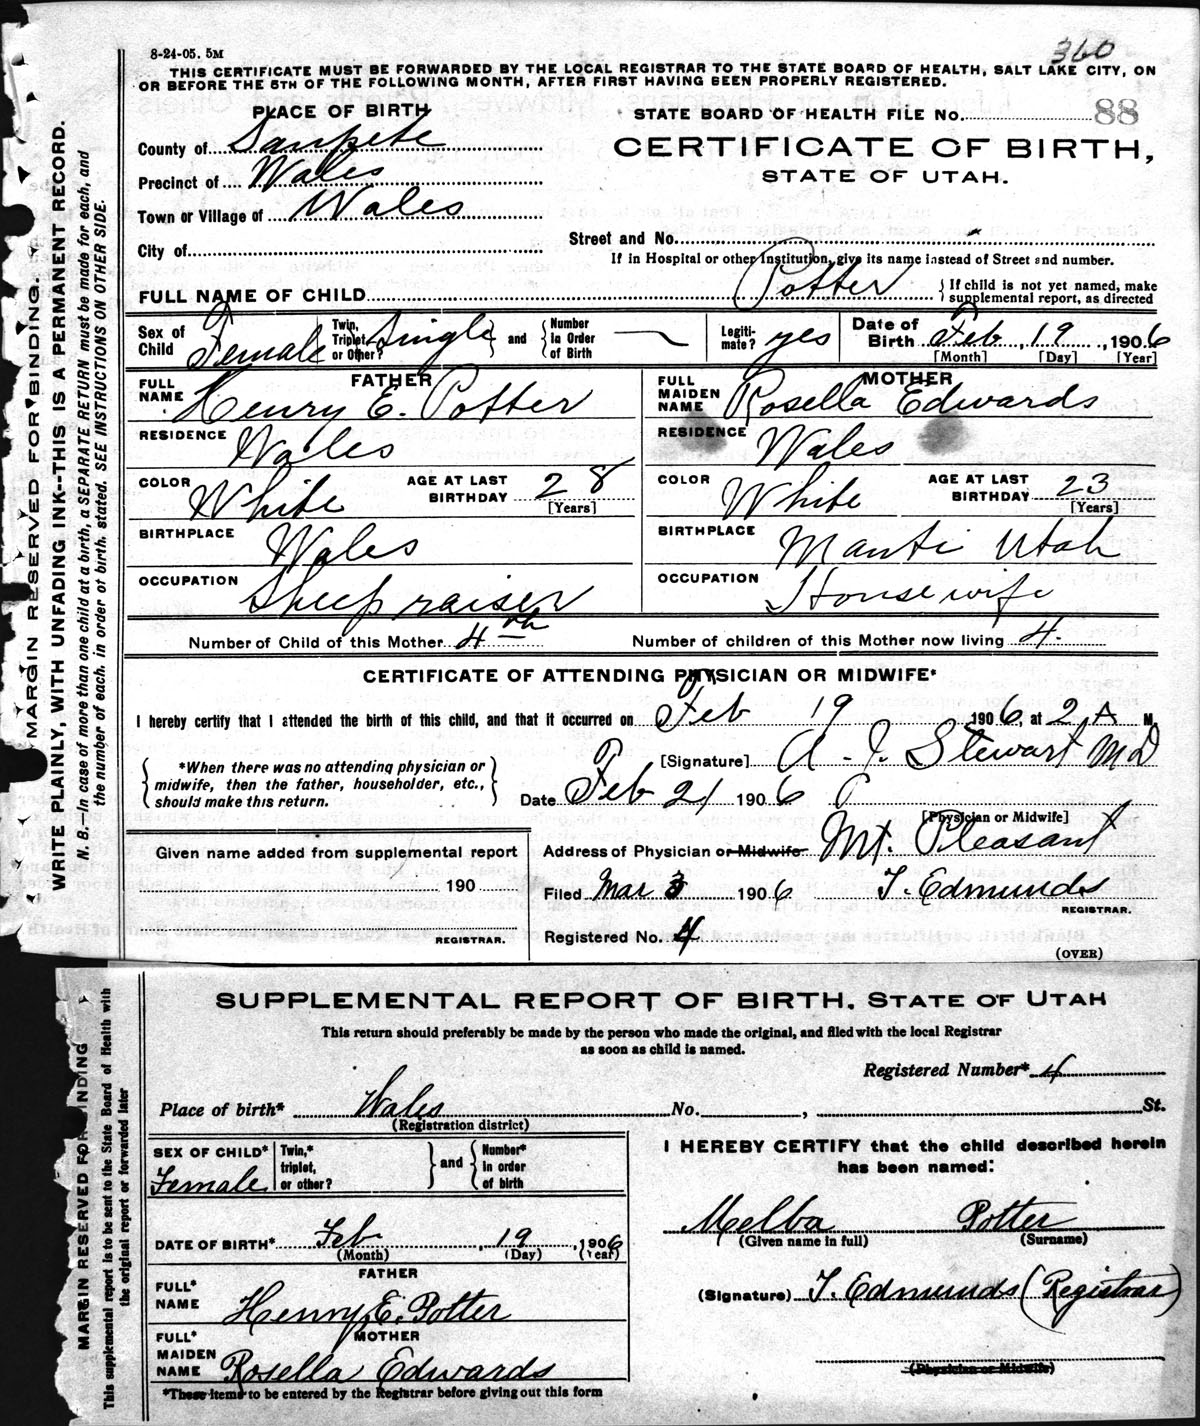 8-24-05. 5M
360
THIS CERTIFICATE MUST BE FORWARDED BY THE LOCAL REGISTRAR TO THE STATE BOARD OF HEALTH, SALT LAKE CITY, ON
OR BEFORE THE 5TH OF THE FOLLOWING MONTH, AFTER FIRST HAVING BEEN PROPERLY REGISTERED.
PLACE OF BIRTH
STATE BOARD OF HEALTH FILE No. 88
County of Sanpete
CERTIFICATE OF BIRTH,
Precinct of Wales
STATE OF UTAH.
Town or Village of Wales
City of
Street and No.
If in Hospital or other Institution, give its name instead of Street and number.
FULL NAME OF CHILD Potter
If child is not yet named, make
supplemental report, as directed
Sex of Child Female
Twin, Triplet, or Other? Single and Number In Order of Birth
Legiti-mate? yes
Date of Birth Feb 19, 1906
[Month] [Day] [Year]
FATHER
FULL NAME Henry E. Potter
RESIDENCE Wales
COLOR White AGE AT LAST BIRTHDAY 28
[Years]
BIRTHPLACE Wales
OCCUPATION Sheep raiser
MOTHER
FULL MAIDEN NAME Rosella Edwards
RESIDENCE Wales
COLOR White AGE AT LAST BIRTHDAY 23
[Years]
BIRTHPLACE Manti Utah
OCCUPATION House wife
Number of Child of this Mother 4th Number of children of this Mother now living 4.
CERTIFICATE OF ATTENDING PHYSICIAN OR MIDWIFE*
I hereby certify that I attended the birth of this child, and that it occurred on Feb 19 1906, at 2 A M.
*When there was no attending physician or
midwife, then the father, householder, etc.,
should make this return.
[Signature] A. J. Stewart MD
Date Feb 21 1906
[Physician or Midwife]
Given name added from supplemental report
190
REGISTRAR.
Address of Physician or Midwife Mt. Pleasant
Filed Mar 3 1906 T. Edmunds
REGISTRAR.
Registered No. 4
(OVER)
MARGIN RESERVED FOR BINDING.
WRITE PLAINLY, WITH UNFADING INK--THIS IS A PERMANENT RECORD.
N. B.—In case of more than one child at a birth, a SEPARATE RETURN must be made for each, and
the number of each, in order of birth, stated. SEE INSTRUCTIONS ON OTHER SIDE.
SUPPLEMENTAL REPORT OF BIRTH, STATE OF UTAH
This return should preferably be made by the person who made the original, and filed with the local Registrar
as soon as child is named.
Registered Number* 4
Place of birth* Wales No. , St.
(Registration district)
SEX OF CHILD* Female
Twin,* triplet, or other? and Number* in order of birth
DATE OF BIRTH* Feb 19, 1906
(Month) (Day) (Year)
FATHER
FULL* NAME Henry E. Potter
MOTHER
FULL* MAIDEN NAME Rosella Edwards
*These items to be entered by the Registrar before giving out this form
I HEREBY CERTIFY that the child described herein
has been named:
Melba Potter
(Given name in full) (Surname)
(Signature) T. Edmunds (Registrar)
(Physician or Midwife)
MARGIN RESERVED FOR BINDING
This supplemental report is to be sent to the State Board of Health with
the original report or forwarded later